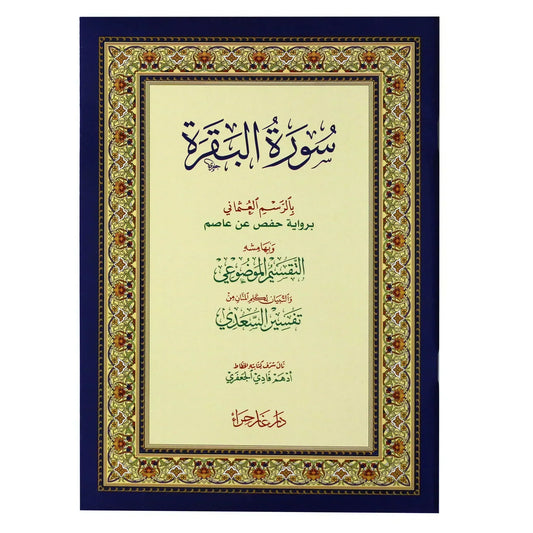 سُورَةُ البَقَرَة
بِالرَّسْمِ العُثْمَانِي
برواية حفص عن عاصم
وَبِهَامِشِهِ
التَّقْسِيْمُ المَوْضُوْعِي
تَفْسِيْرُ السَّعْدِي
نَالَ شَرَفَ كِتَابَتِهِ الخَطَّاط
أدْهَم فَادِي الجَعْفَرِي
دَار غَار حِرَاء